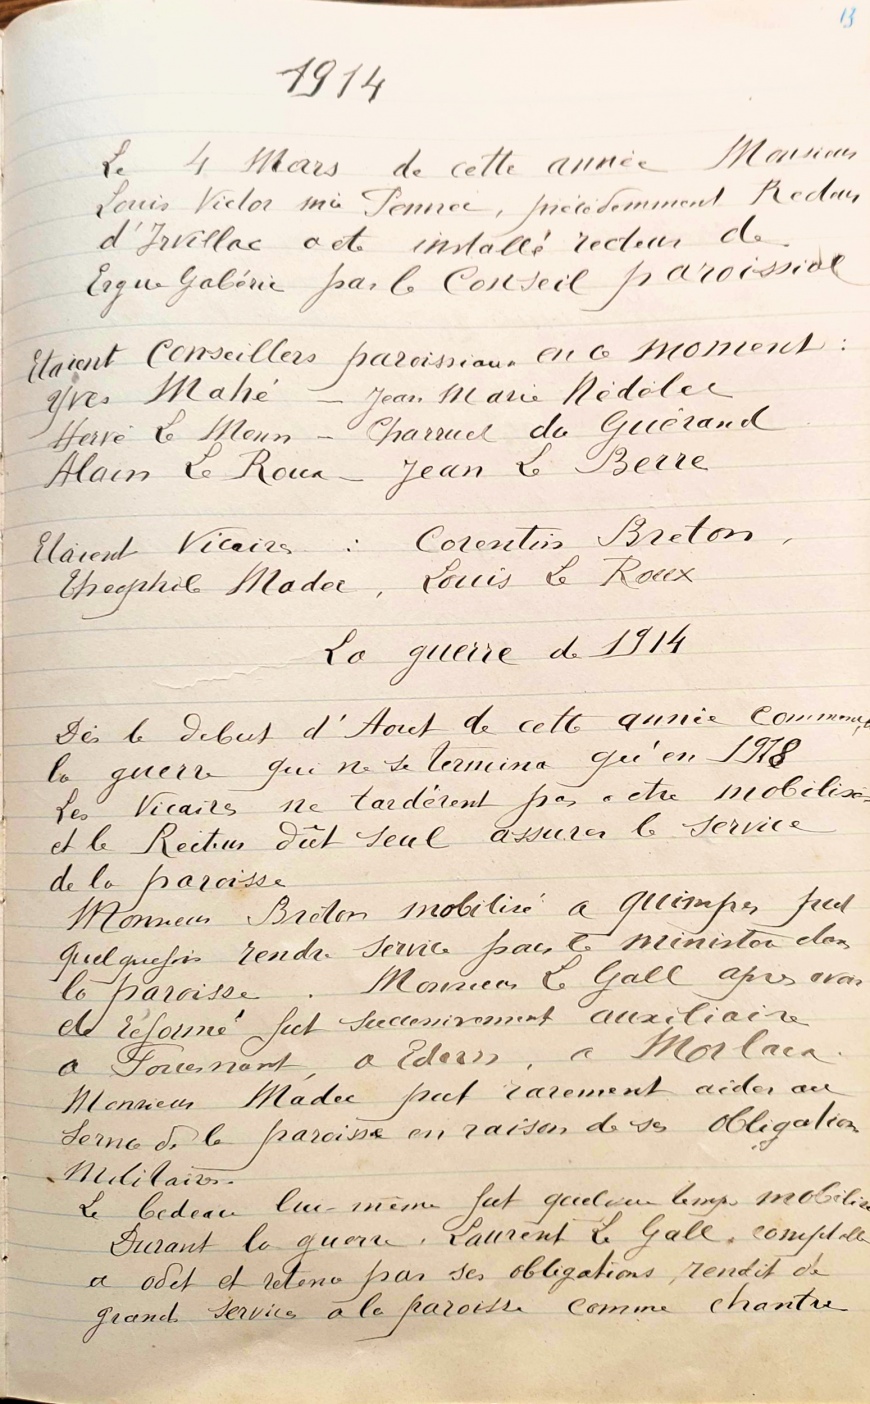 13
1914
Le 4 Mars de cette année Monsieur
Louis Victor Pennec, précédemment Recteur
d'Irvillac a été installé recteur de
Ergue Gabéric par le Conseil paroissial
Etaient Conseillers paroissiaux en ce moment :
Yves Mahé – Jean Marie Nédélec
Hervé Le Menn – Charruel du Guérand
Alain Le Roux – Jean Le Berre
Etaient Vicaires : Corentin Breton,
Theophile Madec, Louis Le Roux
La guerre de 1914
Dès le debut d'Aout de cette année commença
la guerre qui ne se termina qu'en 1918
Les Vicaires ne tardérent pas a etre mobilisés
et le Recteur dût seul assurer le service
de la paroisse
Monsieur Breton mobilisé a Quimper put
quelquefois rendre service pour le ministere dans
la paroisse . Monsieur Le Gall apres avoir
été réformé fut successivement auxiliaire
a Fouesnant, a Edern, a Morlaix.
Monsieur Madec put rarement aider au
service de la paroisse en raison de ses obligations
Militaires.
Le bedeau lui-même fut quelque temps mobilisé
Durant la guerre, Laurent Le Gall, comptable
a odet et retenu par ses obligations, rendit de
grands services a la paroisse comme chantre